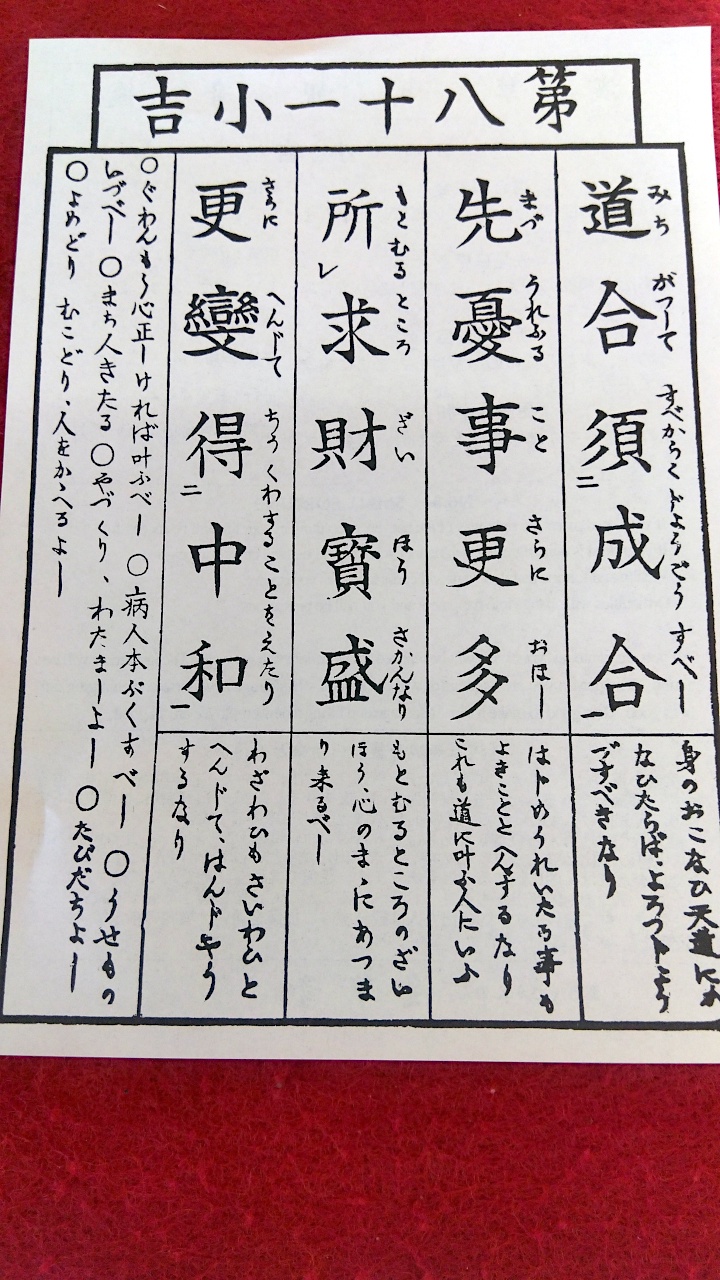 第八十一小吉
みち がつして すべからく じようごう すべし
道合須二成合一
まづ うれふる こと さらに おほし
先憂事更多
もとむるところ ざい ほう さかんなり
所レ求財寶盛
さらに へんじて ちうくわすることをえたり
更變得二中和一
身のおこなひ天道にか
なひたらば、よろづ
すべきなり
はじめうれいたる事も
よきことゝへんずるなり
これも道に叶ふ人にいふ
もとむるところのざい
ほう、心のまゝにあつま
り来るべし
わざわひもさいわひと
へんじて、はんじやう
するなり
○ぐわんもう心正しければ叶ふべし ○病人本ぶくすべし ○うせもの
いづべし ○まち人きたる ○やづくり、わたましよし ○たびだちよし
○よめどり むこどり、人をかゝへるよし